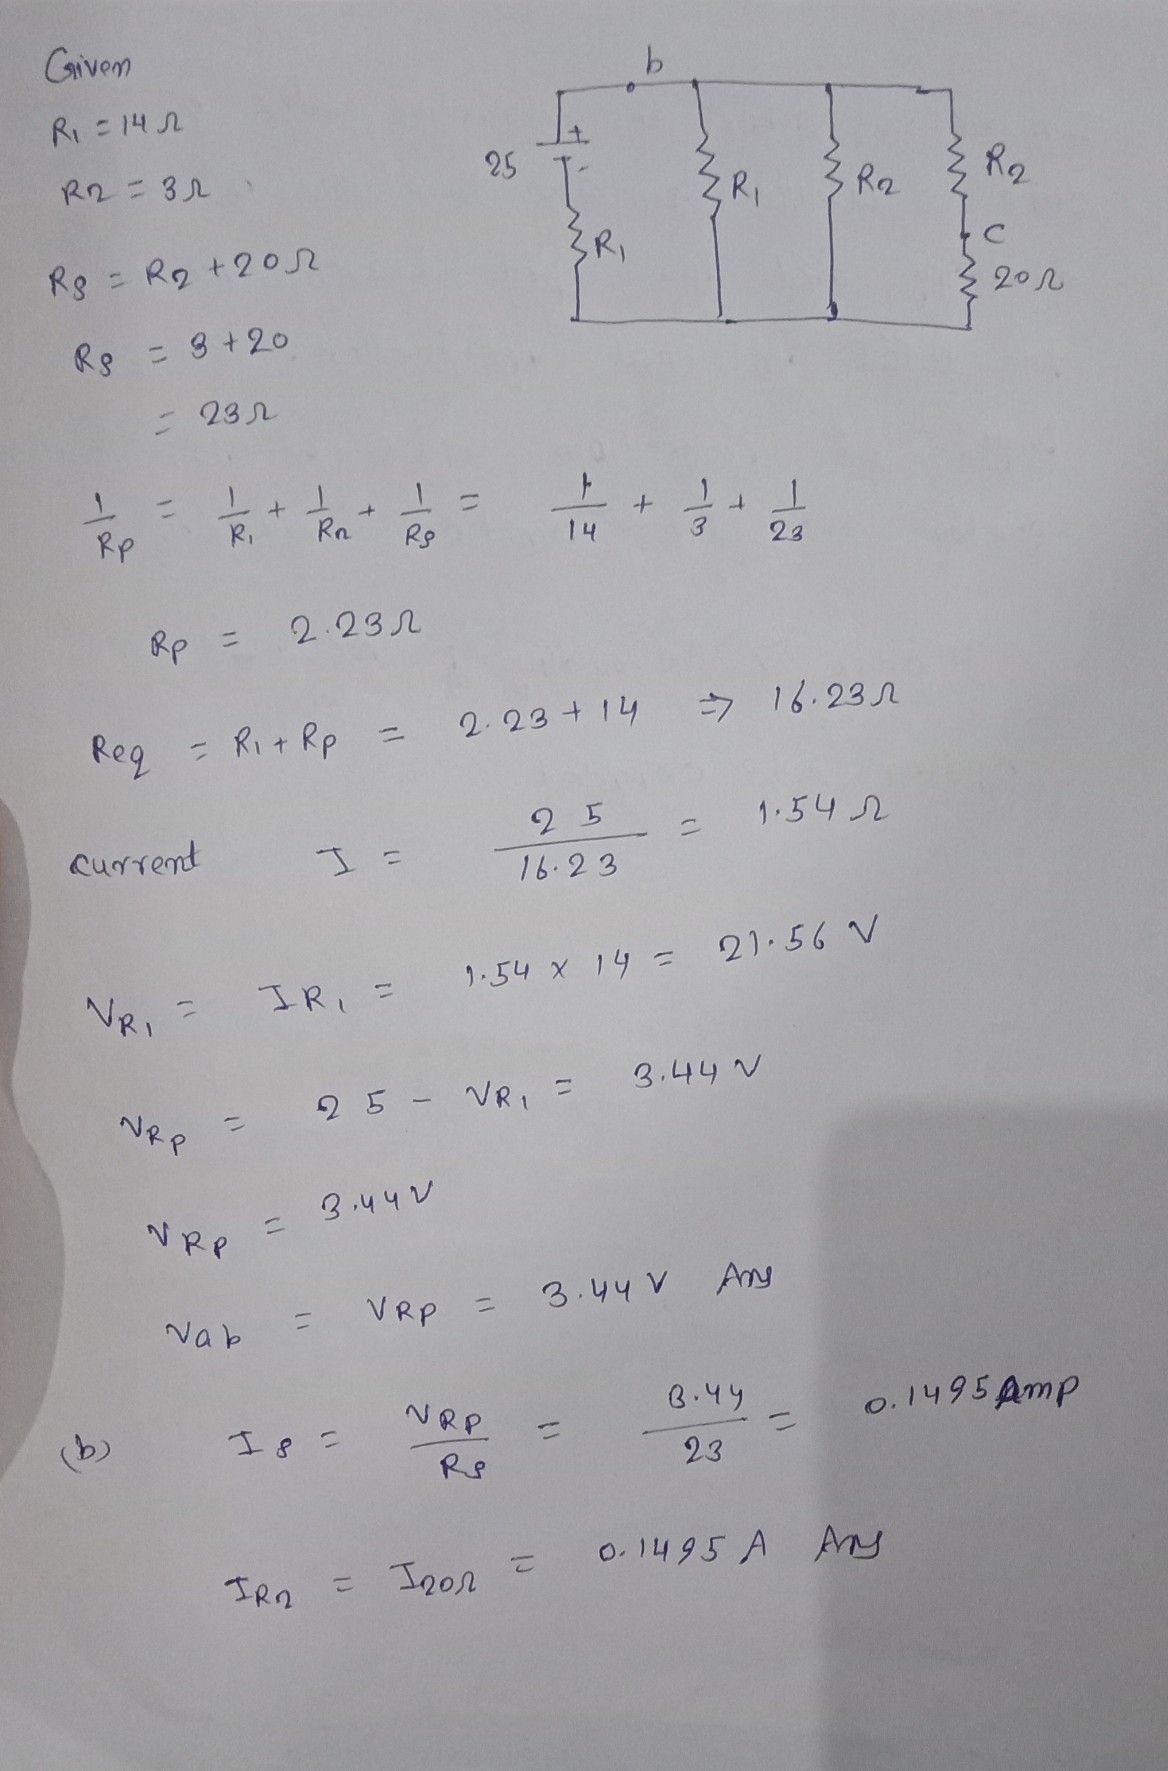 Given
b
R1 = 14 Ω
R2 = 3 Ω
+
25
-
R1
R2
R2
R1
c
20 Ω
Rs = R2 + 20 Ω
Rs = 3 + 20
= 23 Ω
1/Rp = 1/R1 + 1/R2 + 1/Rs = 1/14 + 1/3 + 1/23
Rp = 2.23 Ω
Req = R1 + Rp = 2.23 + 14 ⇒ 16.23 Ω
current I = 25/16.23 = 1.54 Ω
VR1 = IR1 = 1.54 × 14 = 21.56 V
VRp = 25 - VR1 = 3.44 V
VRp = 3.44 V
Vab = VRP = 3.44 V Ans
(b) Is = VRP/Rs = 3.44/23 = 0.1495 Amp
IR2 = I20Ω = 0.1495 A Ans